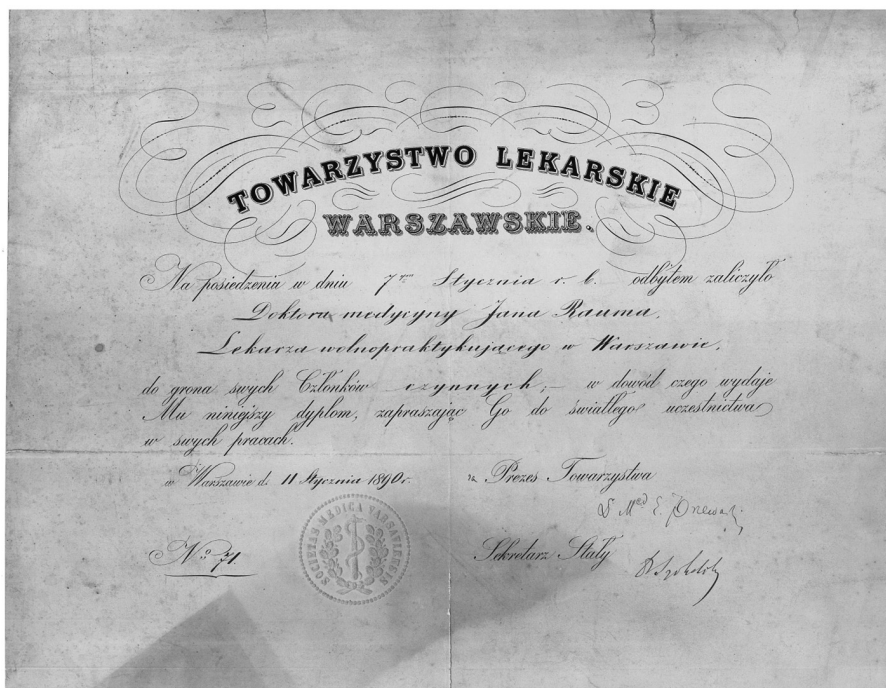 TOWARZYSTWO LEKARSKIE
WARSZAWSKIE.
Na posiedzeniu w dniu 7go Stycznia r. b. odbytem zaliczyło
Doktora medycyny Jana Rauma,
Lekarza wolnopraktykującego w Warszawie,
do grona swych Członków czynnych,— w dowód czego wydaje
Mu niniejszy dyplom, zapraszając Go do światłego uczestnictwa
w swych pracach.
w Warszawie d. 11 Stycznia 1890 r. za Prezes Towarzystwa
D Med E.
SOCIETAS MEDICA VARSAVIENSIS
No 71. Sekretarz Stały